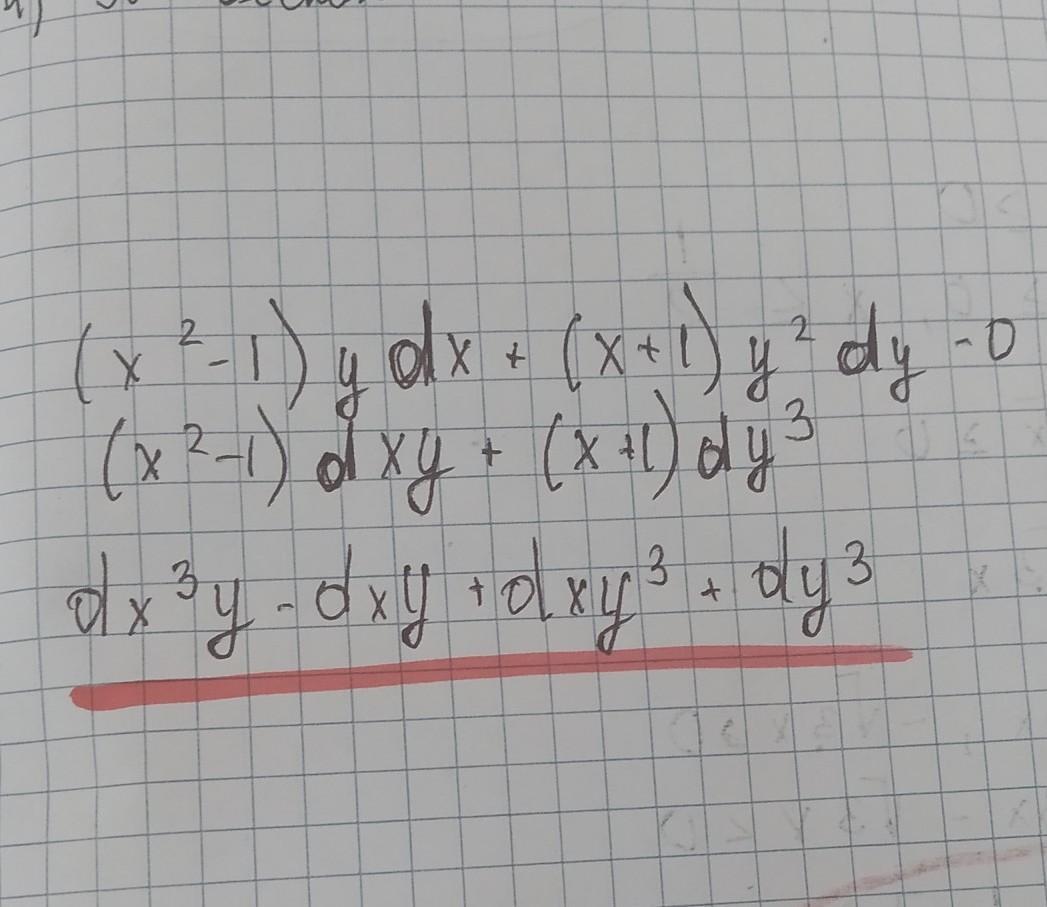 (x²-1) y dx + (x+1) y² dy - 0
(x²-1) dxy + (x+1) dy³
dx³y - dxy + dxy³ + dy³